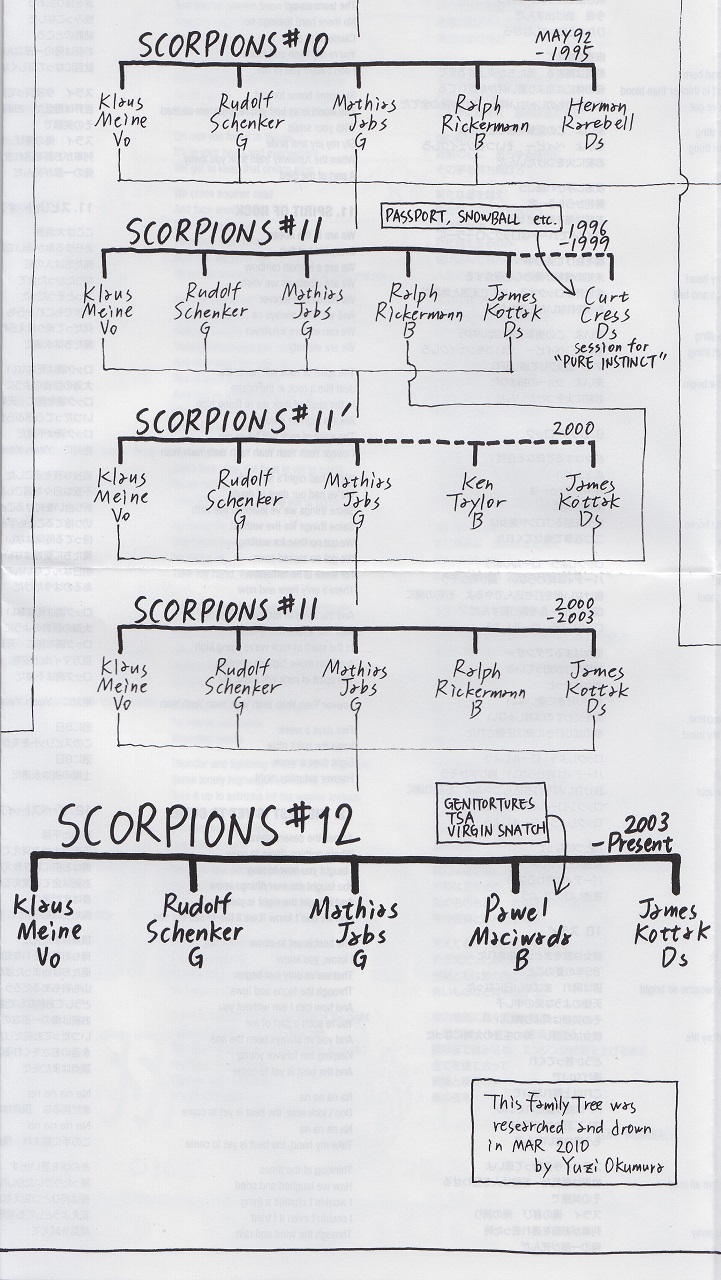 SCORPIONS #10
MAY 92
- 1995
Klaus
Meine
Vo
Rudolf
Schenker
G
Mathias
Jabs
G
Ralph
Rickermann
B
Herman
Rarebell
Ds
PASSPORT, SNOWBALL etc.
SCORPIONS #11
1996
-1999
Klaus
Meine
Vo
Rudolf
Schenker
G
Mathias
Jabs
G
Ralph
Rickermann
B
James
Kottak
Ds
Curt
Cress
Ds
session for
"PURE INSTINCT"
SCORPIONS #11'
2000
Klaus
Meine
Vo
Rudolf
Schenker
G
Mathias
Jabs
G
Ken
Taylor
B
James
Kottak
Ds
SCORPIONS #11
2000
-2003
Klaus
Meine
Vo
Rudolf
Schenker
G
Mathias
Jabs
G
Ralph
Rickermann
B
James
Kottak
Ds
GENITORTURES
TSA
VIRGIN SNATCH
SCORPIONS #12
2003
-Present
Klaus
Meine
Vo
Rudolf
Schenker
G
Mathias
Jabs
G
Pawel
Maciwada
B
James
Kottak
Ds
This Family Tree was
researched and drawn
in MAR 2010
by Yuzi Okumura